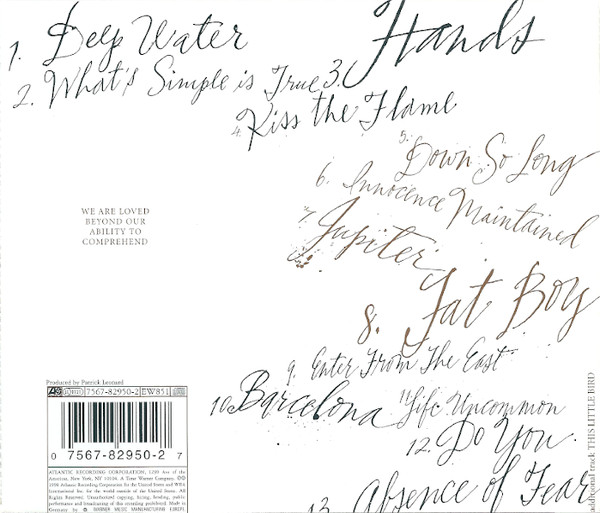 1. Deep Water
2. What's Simple is True
3. Hands
4. Kiss the Flame
5. Down So Long
6. Innocence Maintained
7. Jupiter
8. Fat Boy
9. Enter From The East
10. Barcelona
11 Life Uncommon
12. Do You
13. Absence of Fear
additional track THIS LITTLE BIRD
WE ARE LOVED
BEYOND OUR
ABILITY TO
COMPREHEND
Produced by Patrick Leonard
7567-82950-2 EW851
0 7567-82950-2 7
ATLANTIC RECORDING CORPORATION, 1290 Ave of the
Americas, New York, NY 10104. A Time Warner Company.
1998 Atlantic Recording Corporation for the United States and WEA
International Inc. for the world outside of the United States. All
Rights Reserved. Unauthorized copying, hiring, lending, public
performance and broadcasting of this recording prohibited. Made in
Germany by WARNER MUSIC MANUFACTURING EUROPE.